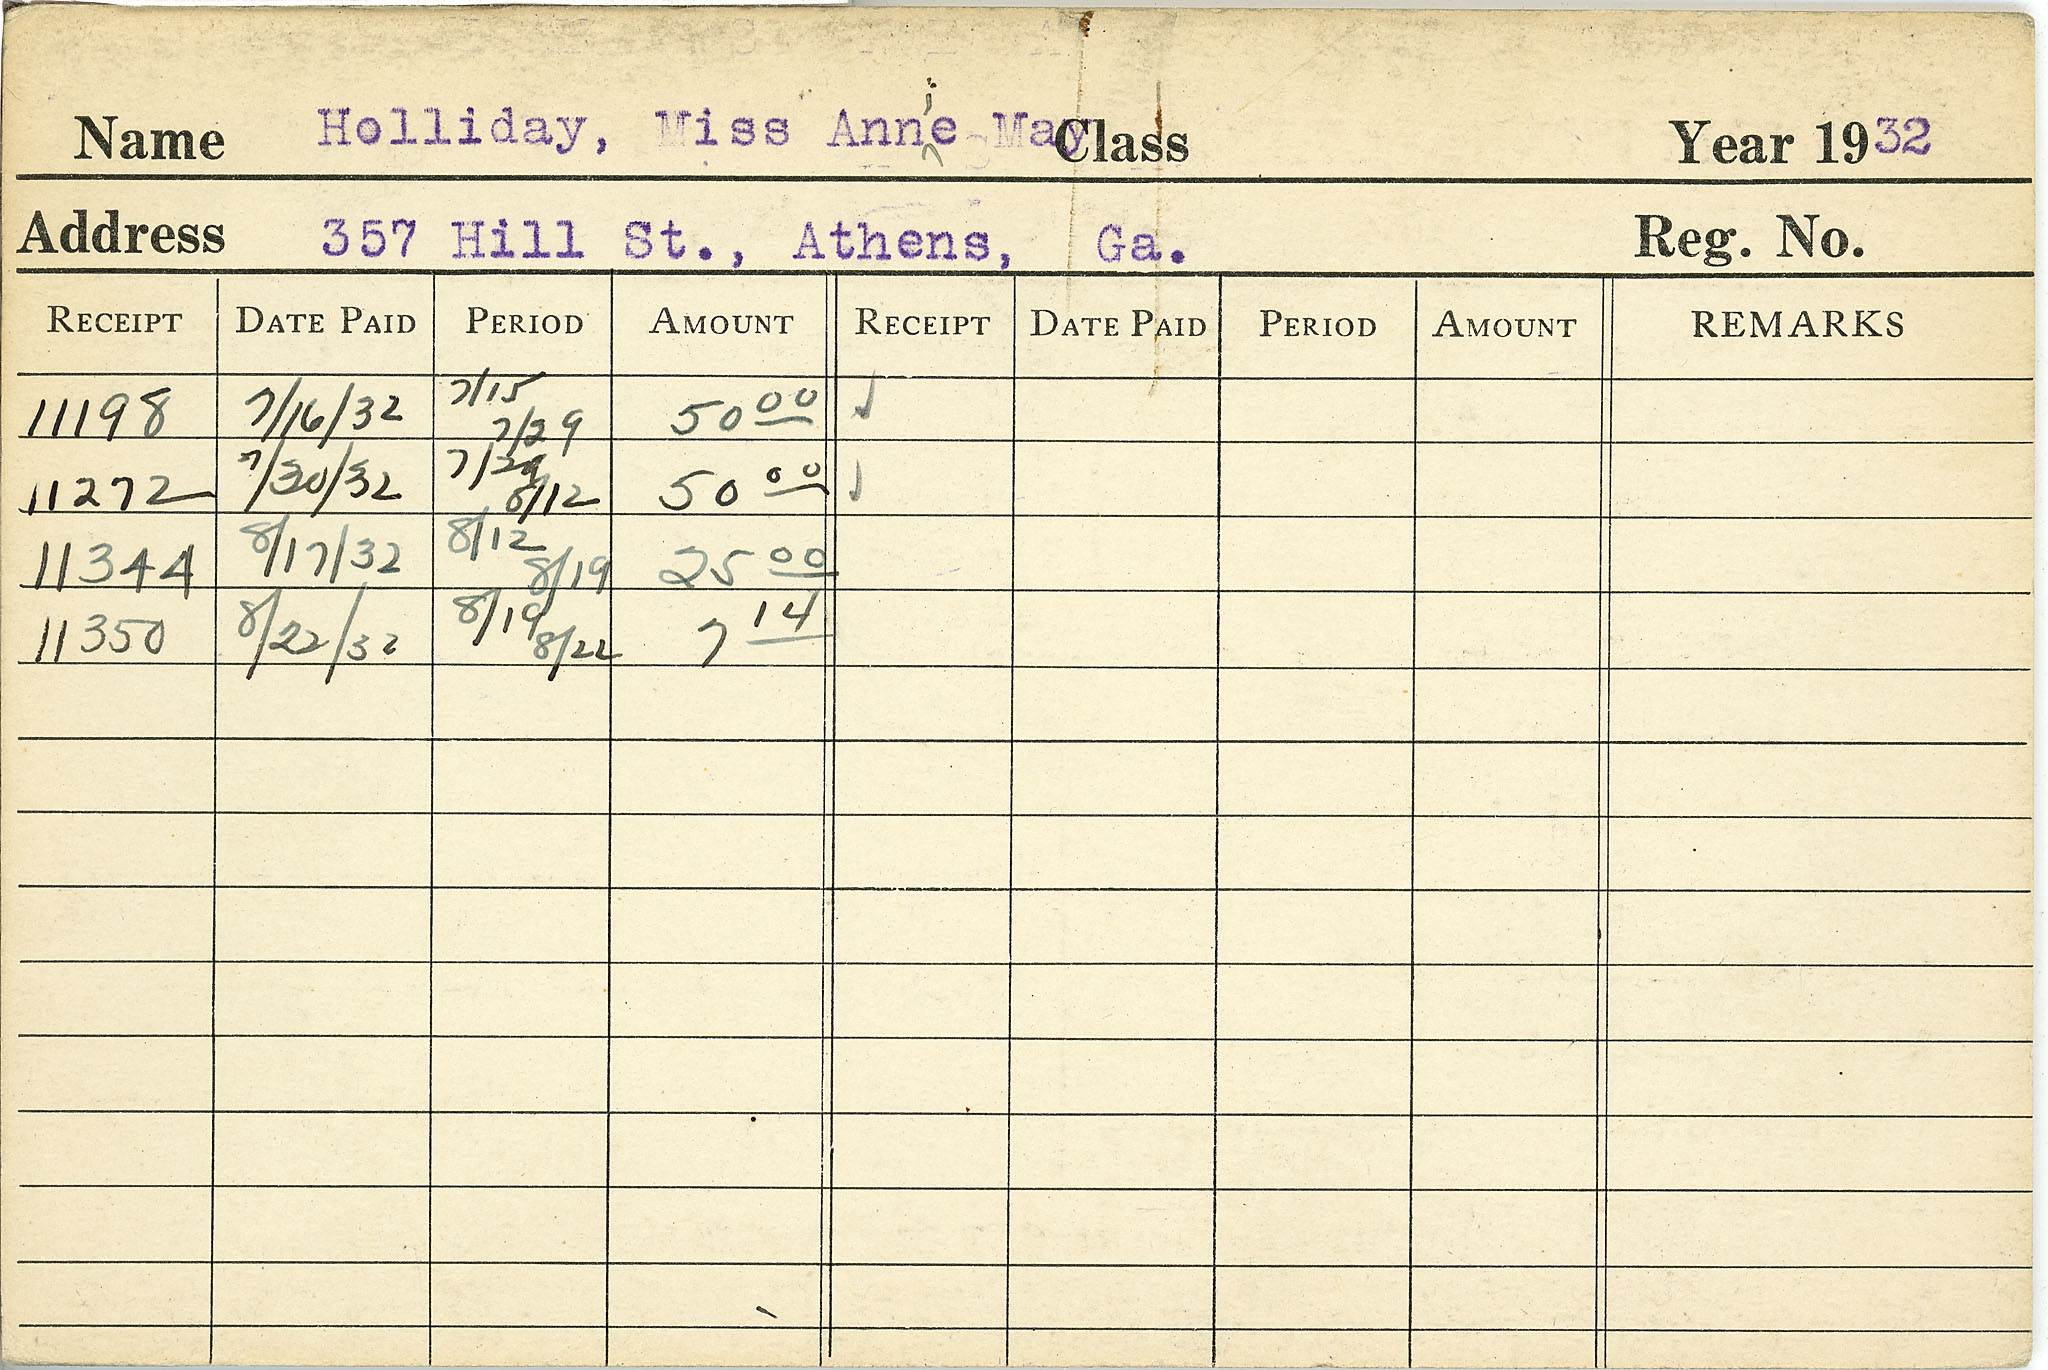 Name Holliday, Miss Annie May Class Year 1932
Address 357 Hill St., Athens, Ga. Reg. No.
RECEIPT DATE PAID PERIOD AMOUNT RECEIPT DATE PAID PERIOD AMOUNT REMARKS
11198 7/16/32 7/15 7/29 50 00 ✓
11272 7/30/32 7/29 8/12 50 00 ✓
11344 8/17/32 8/12 8/19 25 00
11350 8/22/32 8/19 8/22 7 14